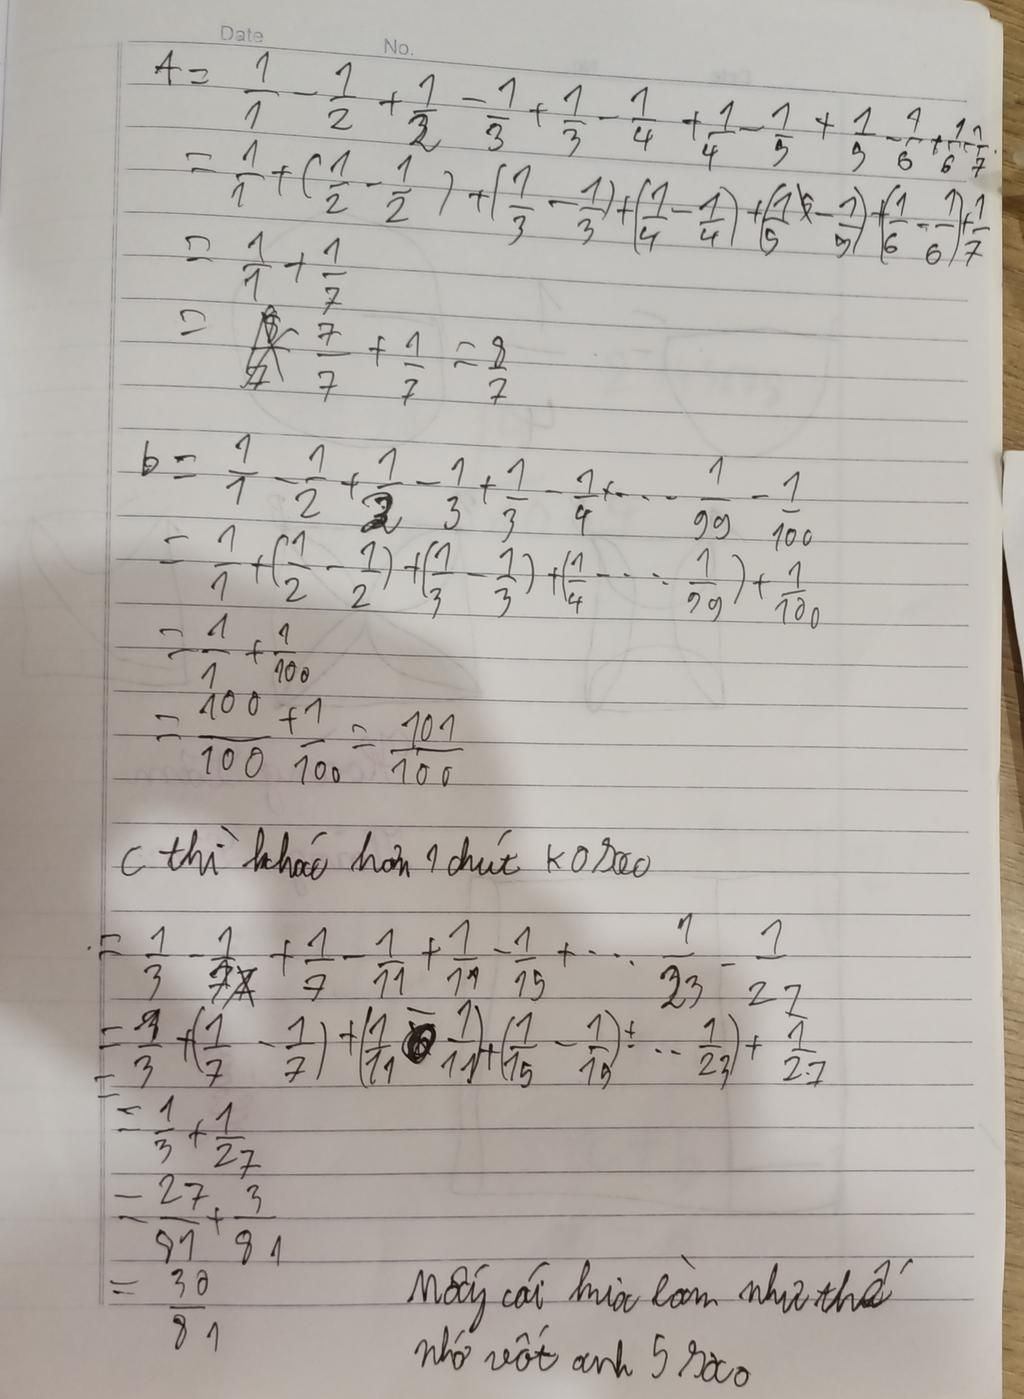 Date No.
A = 1/1 - 1/2 + 1/2 - 1/3 + 1/3 - 1/4 + 1/4 - 1/5 + 1/5 - 1/6 + 1/6 - 1/7
= 1/1 + (1/2 - 1/2) + (1/3 - 1/3) + (1/4 - 1/4) + (1/5 - 1/5) + (1/6 - 1/6) + 1/7
= 1/1 + 1/7
= 7/7 + 1/7 = 8/7
b = 1/1 - 1/2 + 1/2 - 1/3 + 1/3 - 1/4 + ... - 1/99 - 1/100
= 1/1 + (1/2 - 1/2) + (1/3 - 1/3) + (1/4 - ... 1/99) + 1/100
= 1/1 + 1/100
= 100/100 + 1/100 = 101/100
c thì khác hơn 1 chút ko sao
= 1/3 - 1/7 + 1/7 - 1/11 + 1/11 - 1/15 + ... 1/23 - 1/27
= 1/3 + (1/7 - 1/7) + (1/11 - 1/11) + (1/15 - 1/15) + ... 1/23) + 1/27
=
= 1/3 + 1/27
= 27/81 + 3/81
= 30/81
Mấy cái kia làm như thế
nhớ vốt anh 5 sao